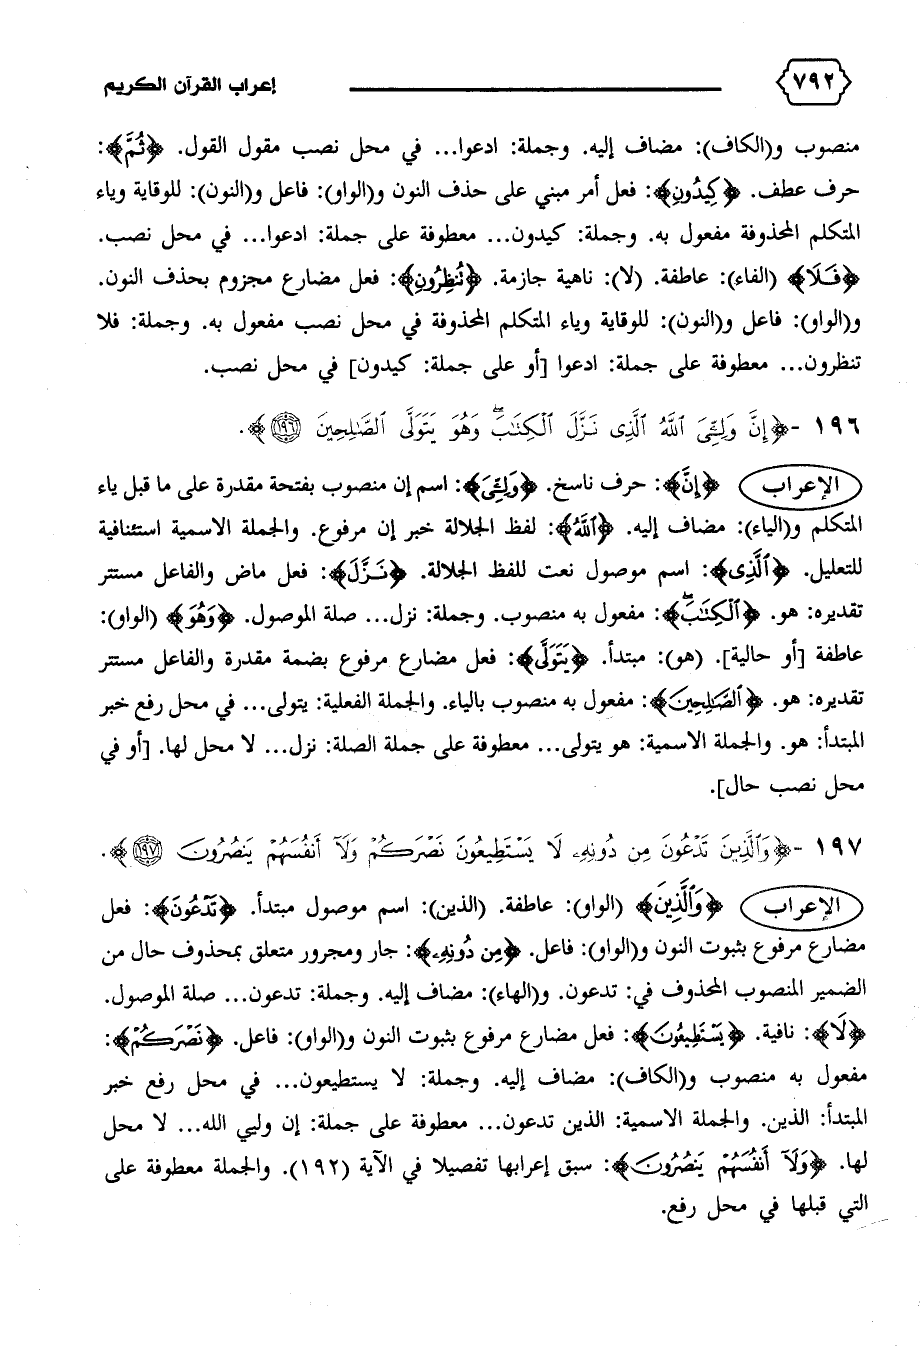 ٧٩٢ إعراب القرآن الكريم
منصوب و(الكاف): مضاف إليه. وجملة: ادعوا... في محل نصب مقول القول. ﴿ثُمَّ﴾:
حرف عطف. ﴿كِيدُونِ﴾: فعل أمر مبني على حذف النون و(الواو): فاعل و(النون): للوقاية وياء
المتكلم المحذوفة مفعول به. وجملة: كيدون... معطوفة على جملة: ادعوا... في محل نصب.
﴿فَلَا﴾ (الفاء): عاطفة. (لا): ناهية جازمة. ﴿تُنظِرُونِ﴾: فعل مضارع مجزوم بحذف النون.
و(الواو): فاعل و(النون): للوقاية وياء المتكلم المحذوفة في محل نصب مفعول به. وجملة: فلا
تنظرون... معطوفة على جملة: ادعوا [أو على جملة: كيدون] في محل نصب.
١٩٦ -﴿إِنَّ وَلِـِّۧيَ ٱللَّهُ ٱلَّذِى نَزَّلَ ٱلْكِتَٰبَۖ وَهُوَ يَتَوَلَّى ٱلصَّٰلِحِينَ ١٩٦﴾.
الإعراب ﴿إِنَّ﴾: حرف ناسخ. ﴿وَلِـِّۧيَ﴾: اسم إن منصوب بفتحة مقدرة على ما قبل ياء
المتكلم و(الياء): مضاف إليه. ﴿ٱللَّهُ﴾: لفظ الجلالة خبر إن مرفوع. والجملة الاسمية استئنافية
للتعليل. ﴿ٱلَّذِى﴾: اسم موصول نعت للفظ الجلالة. ﴿نَزَّلَ﴾: فعل ماض والفاعل مستتر
تقديره: هو. ﴿ٱلْكِتَٰبَۖ﴾: مفعول به منصوب. وجملة: نزل... صلة الموصول. ﴿وَهُوَ﴾ (الواو):
عاطفة [أو حالية]. (هو): مبتدأ. ﴿يَتَوَلَّى﴾: فعل مضارع مرفوع بضمة مقدرة والفاعل مستتر
تقديره: هو. ﴿ٱلصَّٰلِحِينَ﴾: مفعول به منصوب بالياء. والجملة الفعلية: يتولى... في محل رفع خبر
المبتدأ: هو. والجملة الاسمية: هو يتولى... معطوفة على جملة الصلة: نزل... لا محل لها. [أو في
محل نصب حال].
١٩٧ -﴿وَٱلَّذِينَ تَدْعُونَ مِن دُونِهِۦ لَا يَسْتَطِيعُونَ نَصْرَكُمْ وَلَآ أَنفُسَهُمْ يَنصُرُونَ ١٩٧﴾.
الإعراب ﴿وَٱلَّذِينَ﴾ (الواو): عاطفة. (الذين): اسم موصول مبتدأ. ﴿تَدْعُونَ﴾: فعل
مضارع مرفوع بثبوت النون و(الواو): فاعل. ﴿مِن دُونِهِۦ﴾: جار ومجرور متعلق بمحذوف حال من
الضمير المنصوب المحذوف في: تدعون. و(الهاء): مضاف إليه. وجملة: تدعون... صلة الموصول.
﴿لَا﴾: نافية. ﴿يَسْتَطِيعُونَ﴾: فعل مضارع مرفوع بثبوت النون و(الواو): فاعل. ﴿نَصْرَكُمْ﴾:
مفعول به منصوب و(الكاف): مضاف إليه. وجملة: لا يستطيعون... في محل رفع خبر
المبتدأ: الذين. والجملة الاسمية: الذين تدعون... معطوفة على جملة: إن وليي الله... لا محل
لها. ﴿وَلَآ أَنفُسَهُمْ يَنصُرُونَ﴾: سبق إعرابها تفصيلا في الآية (١٩٢). والجملة معطوفة على
التي قبلها في محل رفع.